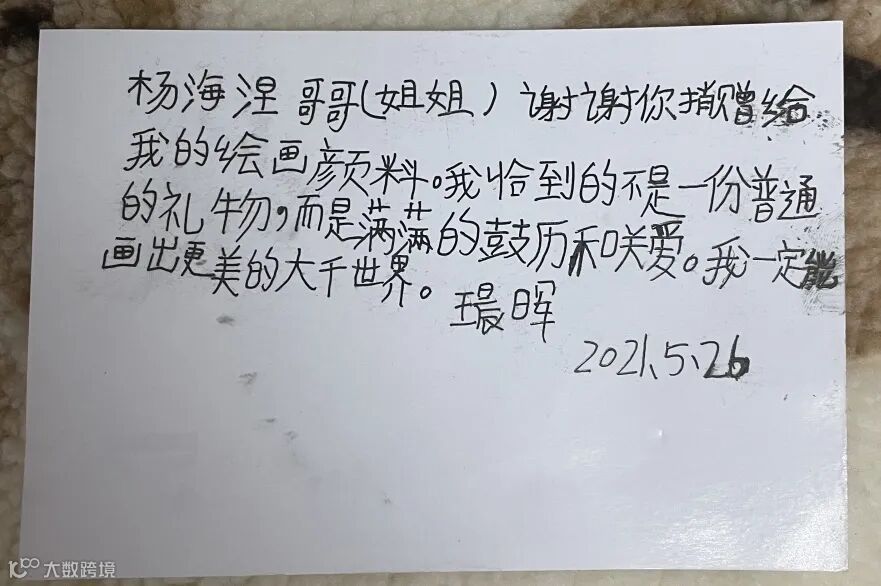 杨海涅 哥哥(姐姐) 谢谢你捐赠给
我的绘画颜料。我恰到的不是一份普通
的礼物,而是满满的鼓历和咲爱。我一定能
画出更美的大千世界。
王晨晖
2021.5.26
大数跨境